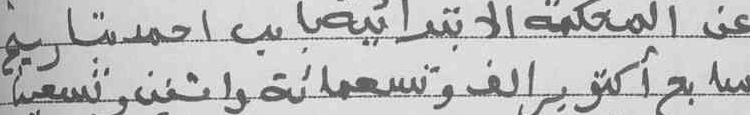 عن المحكمة الابتدائية باب احمد بتاريخ
سابع أكتوبر الف وتسعمائة واثنين وتسعين